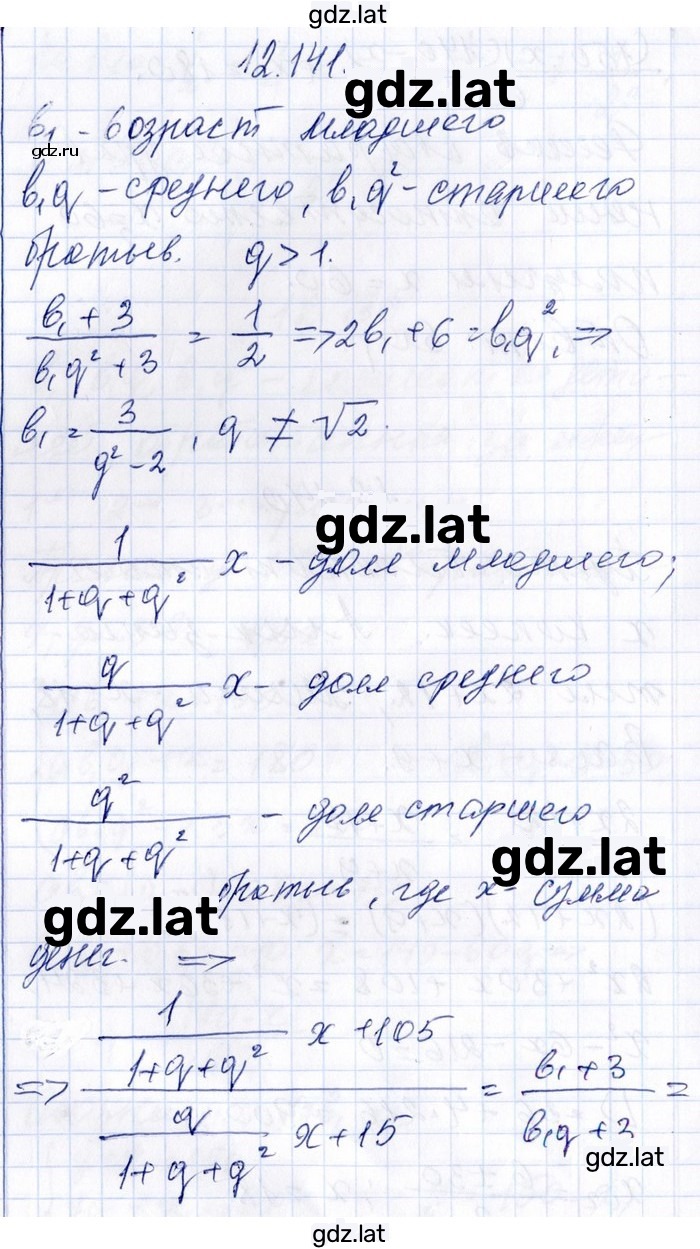 gdz.lat
12.141.
gdz.lat
b₁ - возраст младшего
gdz.ru
b₁q - среднего, b₁q² - старшего
братьев. q > 1.
(b₁ + 3)/(b₁q² + 3) = 1/2 => 2b₁ + 6 = b₁q², =>
b₁ = 3/(q² - 2), q ≠ √2.
gdz.lat
1/(1+q+q²) x - доля младшего;
q/(1+q+q²) x - доля среднего
q²/(1+q+q²) - доля старшего
gdz.lat
братьев, где x - сумма
gdz.lat
денег. =>
=> (1/(1+q+q²) x + 105)/(q/(1+q+q²) x + 15) = (b₁ + 3)/(b₁q + 3) =
gdz.lat
gdz.lat